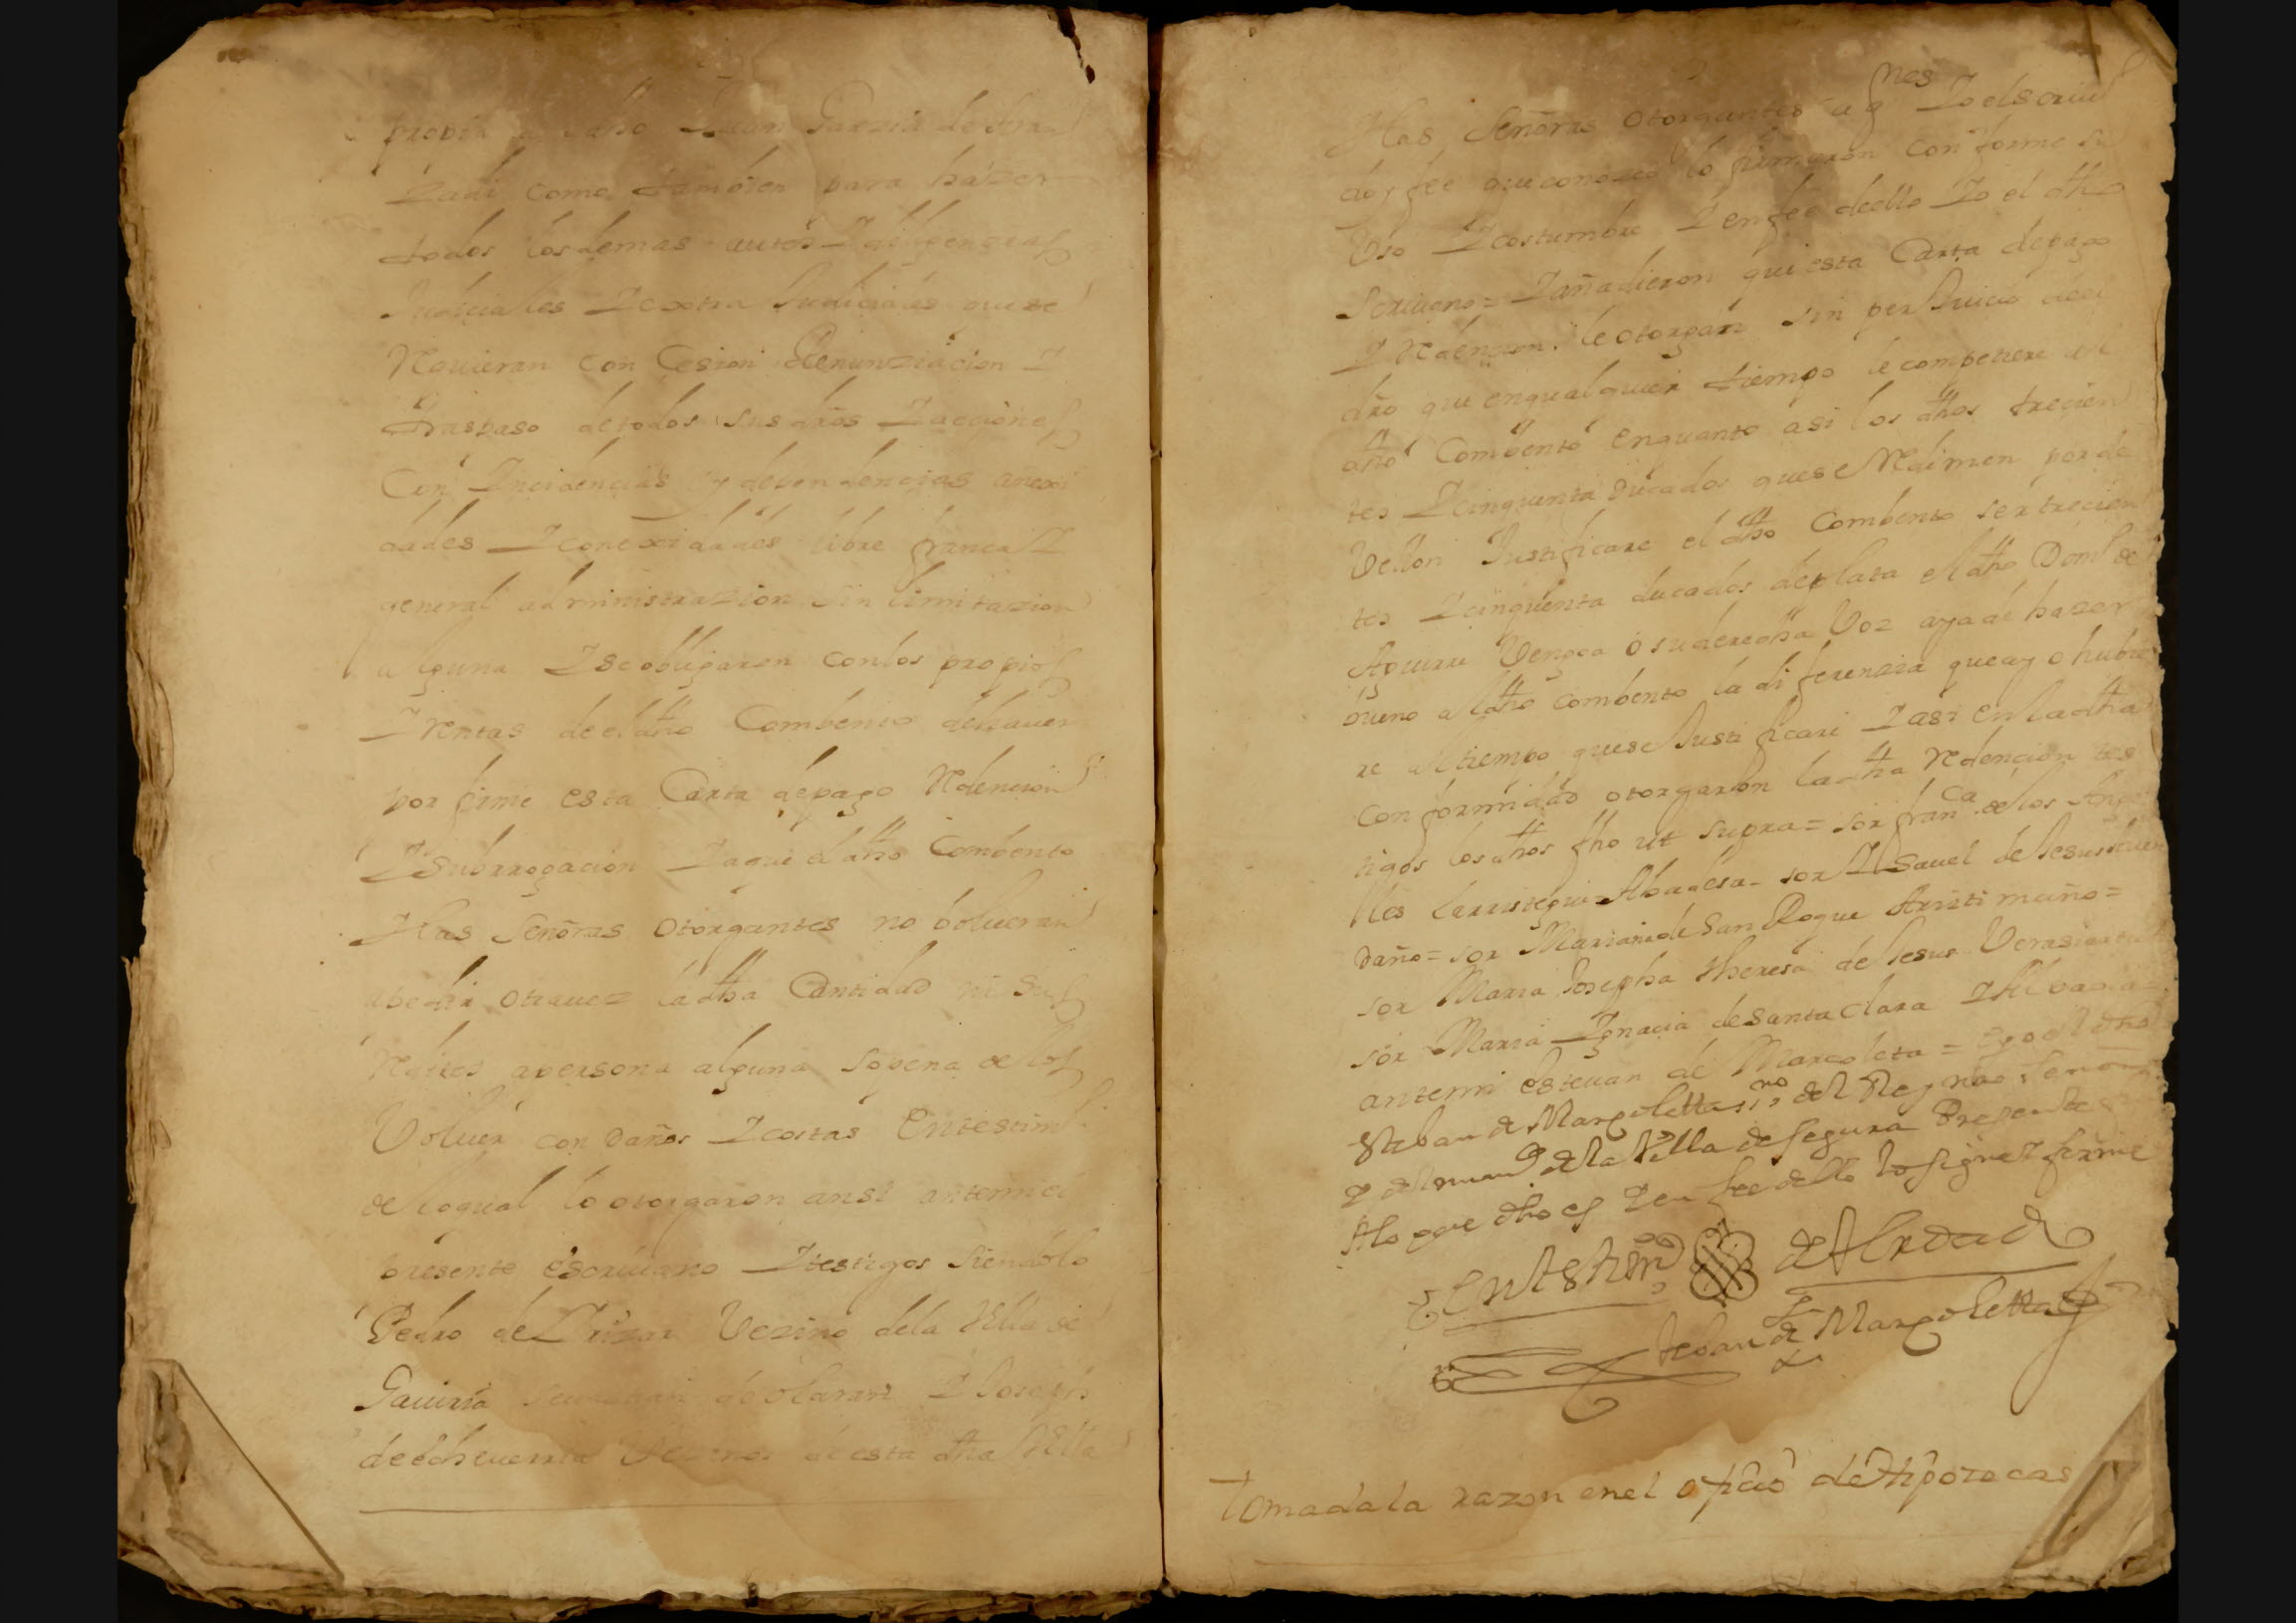 propia a dho Juan Garzia de
como tambien para hazer
todos los demas autos I diligenzias
Judiciales I extra Judiciales que se
Requieran con Cesion Renunziacion I
Traspaso de todos sus dros I acciones
Con Incidencias y dependencias anexi
dades I conexidades libre franca I
general administrazion sin limitazion
alguna I se obligaron con los propios
I Rentas de el dho Combento de hauer
por firme esta Carta de pago Redencion
I Subrrogacion I a que el dho Combento
I las Señoras Otorgantes no bolueran
a pedir otra uez la dha Cantidad ni sus
Reditos a persona alguna so pena de los
Voluer con daños I costas En testimo
de lo qual lo otorgaron ansi ante mi el
presente escriuano I testigos siendolo
Pedro de Vezino de la Villa de
Gauiria de olaran I Joseph
de echeuerria Vezinos de esta dha Villa
I las Señoras Otorgantes a qnes Io el scriuo
doy fee que conozco lo firmaron conforme su
Uso I costumbre I en fee de ello Io el dho
Scriuano = I añadieron que esta Carta de pago
I Redencion le otorgan sin perJuicio de el
dro que en qualquier tiempo le compettiere al
dho Combento en quanto asi los dhos trecien
tos I cinquenta ducados que se Redimen por de
Vellon Justificare el dho Combento ser trecien
tos I cinquenta ducados de plata el dho Domo de
Aguirre Vengoa o su derecha Voz aya de hazer
bueno al dho combento la diferenzia que ay o hubie
re al tiempo que se Justificare I asi en la dha
conformidad otorgaron la dha Redencion tes
tigos los dhos fho ut supra = sor franca de los Ange
lles Larristegui Abadesa - sor Isauel de Jesus
daño = sor Mariana de San Roque Ariztimuño =
sor Maria Josepha theresa de Jesus Verasiartu
sor Maria Ignacia de Santa Clara
ante mi esteuan de Marcoleta = E yo el dho
Esteban de Marcoletta ssno del Rey nro Senor
I del numo de la Villa de segura Presente
A lo que dho es I en fee dello lo signe I firme
En testimo de Verdad
Esteban de Marcoletta
tomada la razon en el oficio de Hipotecas